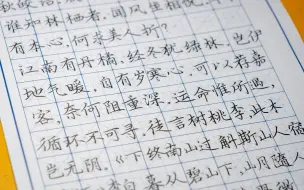 谁知林栖者,闻风坐相悦,
有本心,何求美人折?
江南有丹橘,经冬犹绿林,岂伊
地气暖,自有岁寒心,可以荐嘉
客,奈何阻重深,运命唯所遇,
循环不可寻,徒言树桃李,此木
岂无阴。《下终南山过斛斯山人宿
暮从碧山下,山月随人